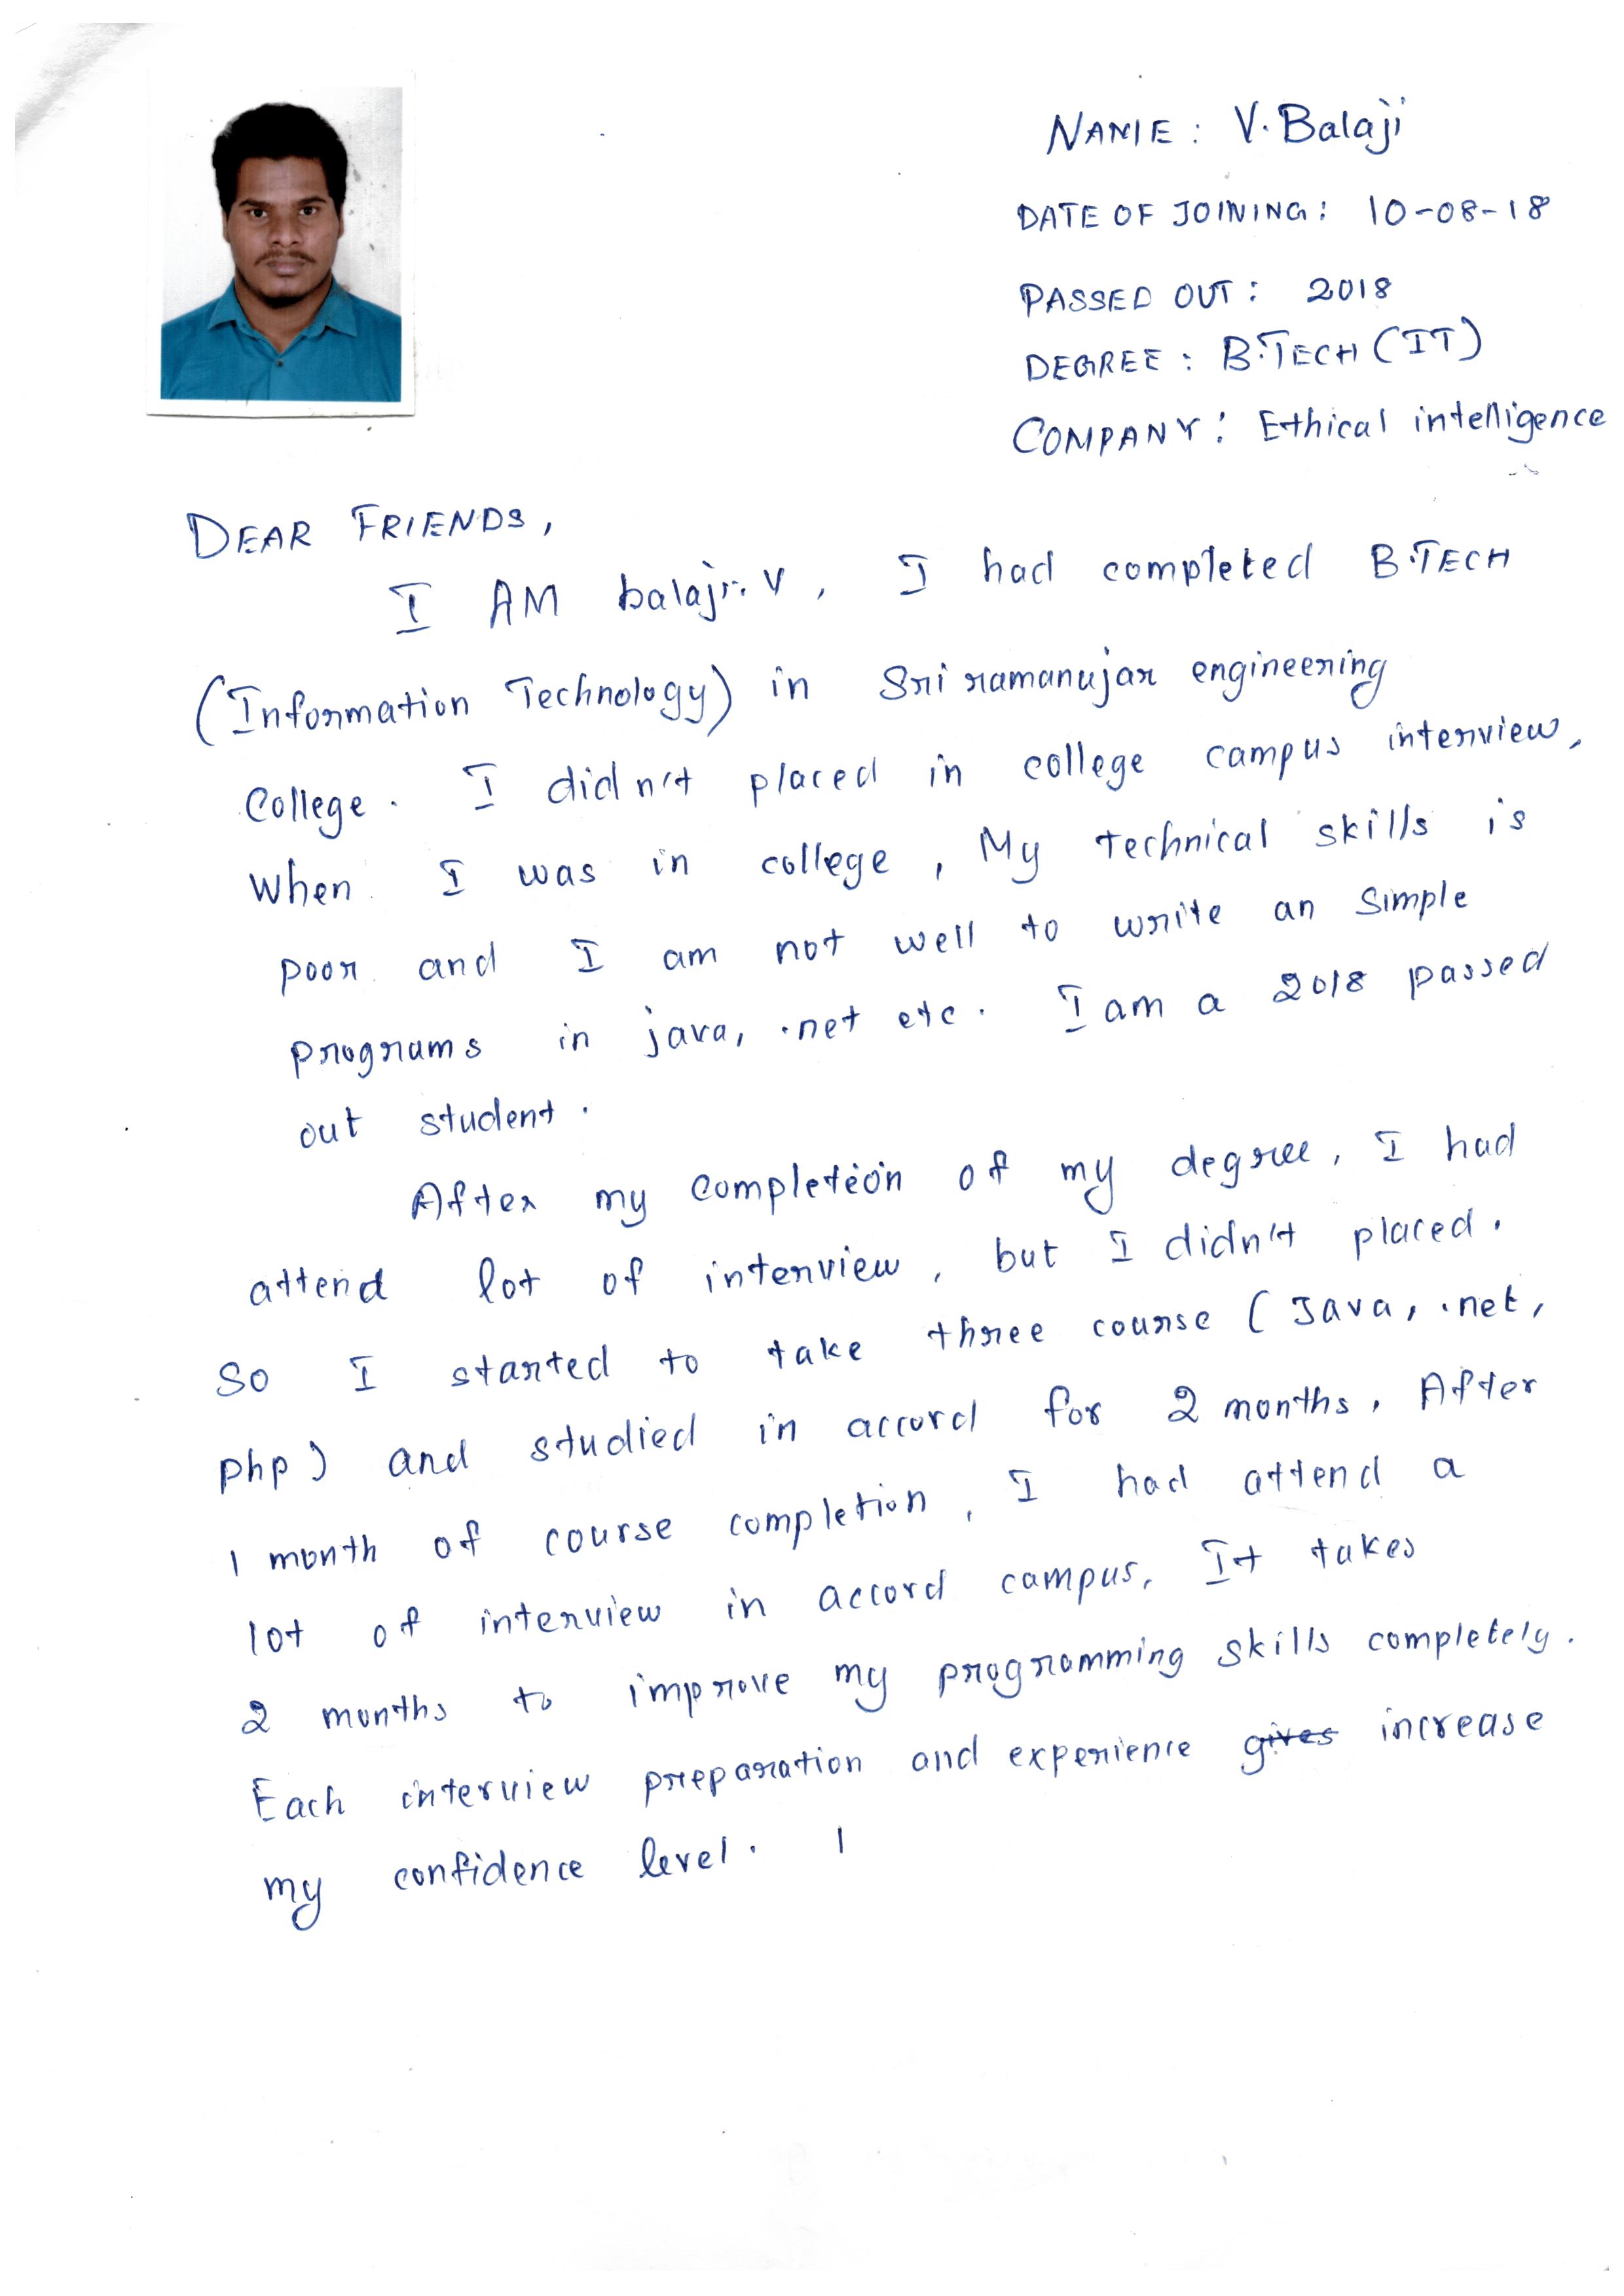 NAME : V. Balaji
DATE OF JOINING : 10-08-18
PASSED OUT : 2018
DEGREE : B.TECH (IT)
COMPANY : Ethical intelligence
DEAR FRIENDS,
I AM balaji. V, I had completed B.TECH
(Information Technology) in Sri ramanujar engineering
College. I didn't placed in college campus interview,
When I was in college, My technical skills is
poor and I am not well to write an simple
programs in java, .net etc. I am a 2018 passed
out student.
After my completion of my degree, I had
attend lot of interview, but I didn't placed.
So I started to take three course (Java, .net,
php) and studied in accord for 2 months. After
1 month of course completion, I had attend a
lot of interview in accord campus. It takes
2 months to improve my programming skills completely.
Each interview preparation and experience gives increase
my confidence level. I